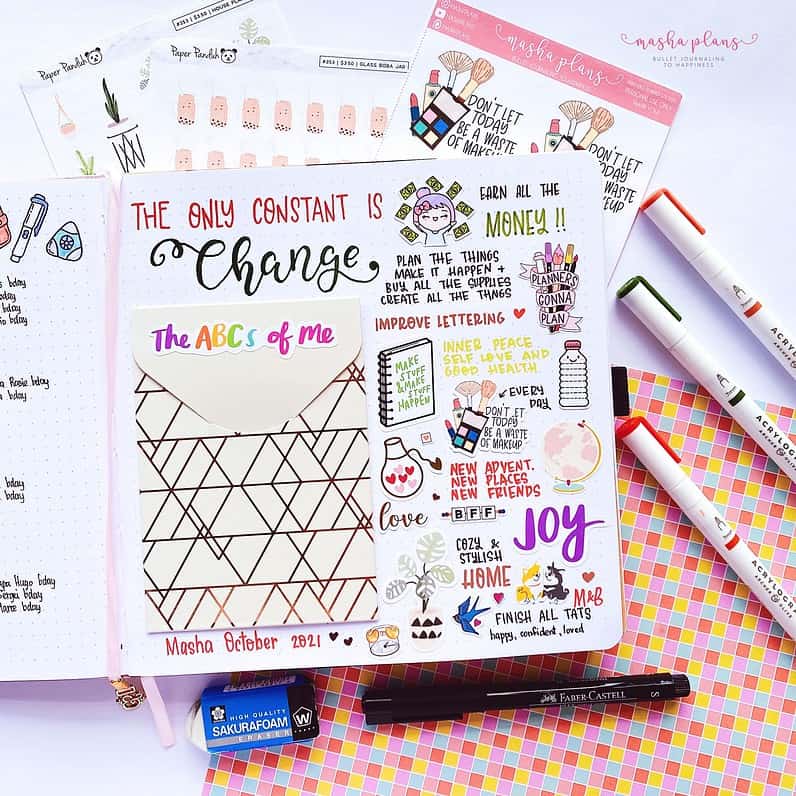 #253 | $350 | HOUSE PLAN
Paper Panduh
#252 | $350 | GLASS BOBA JAR
Paper Panduh
masha plans
DON'T LET
TODAY
BE A WASTE
OF MAKEUP
DON'T LET
TODAY
BE A WASTE
OF MAKEUP
masha plans
BULLET JOURNALING
TO HAPPINESS
THE ONLY CONSTANT IS
Change
The ABCs of Me
Masha October 2021
EARN ALL THE
MONEY !!
PLAN THE THINGS
MAKE IT HAPPEN +
BUY ALL THE SUPPLIES
CREATE ALL THE THNGS
PLANNERS
GONNA
PLAN
IMPROVE LETTERING
MAKE
STUFF
& MAKE
STUFF
HAPPEN
INNER PEACE
SELF LOVE AND
GOOD HEALTH
EVERY
DAY
DON'T LET
TODAY
BE A WASTE
OF MAKEUP
NEW ADVENT.
NEW PLACES
NEW FRIENDS
love
BFF
JOY
COZY &
STYLISH
HOME
M&B
FINISH ALL TATS
happy, confident, loved
bday
bday
Rosie bday
bday
bday
bday
Hugo bday
bday
Marie bday
ACRYLOGRAPH
ACRYLOGRAPH
ACRYLOGRA
HIGH QUALITY
SAKURAFOAM
ERASER
W
FABER-CASTELL
S